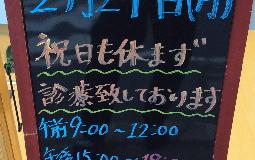 2月21日(月)
祝日も休まず
診療致しております
午前9:00〜12:00
午後15:00〜18: